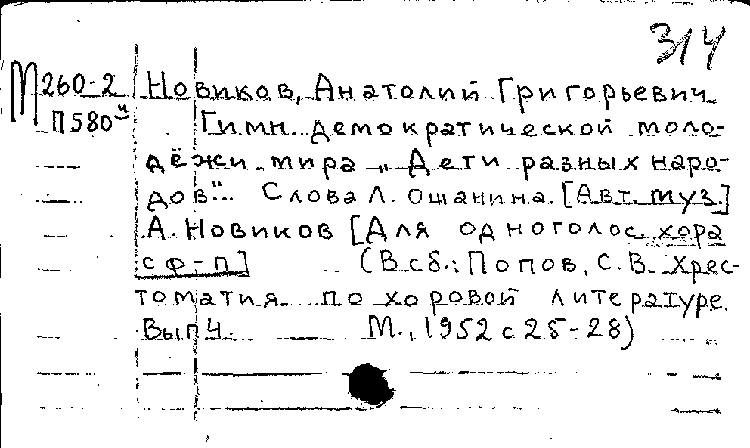 314
М260-2 Новиков, Анатолий Григорьевич
П580ч Гимн демократической моло-
дёжи мира "Дети разных наро-
дов". Слова Л. Ошанина. [Авт. муз.]
А. Новиков [Для одноголос. хора
с ф-п] (В сб.: Попов, С. В. Хрес-
томатия по хоровой литературе.
Вып 4. М., 1952 с 25-28)